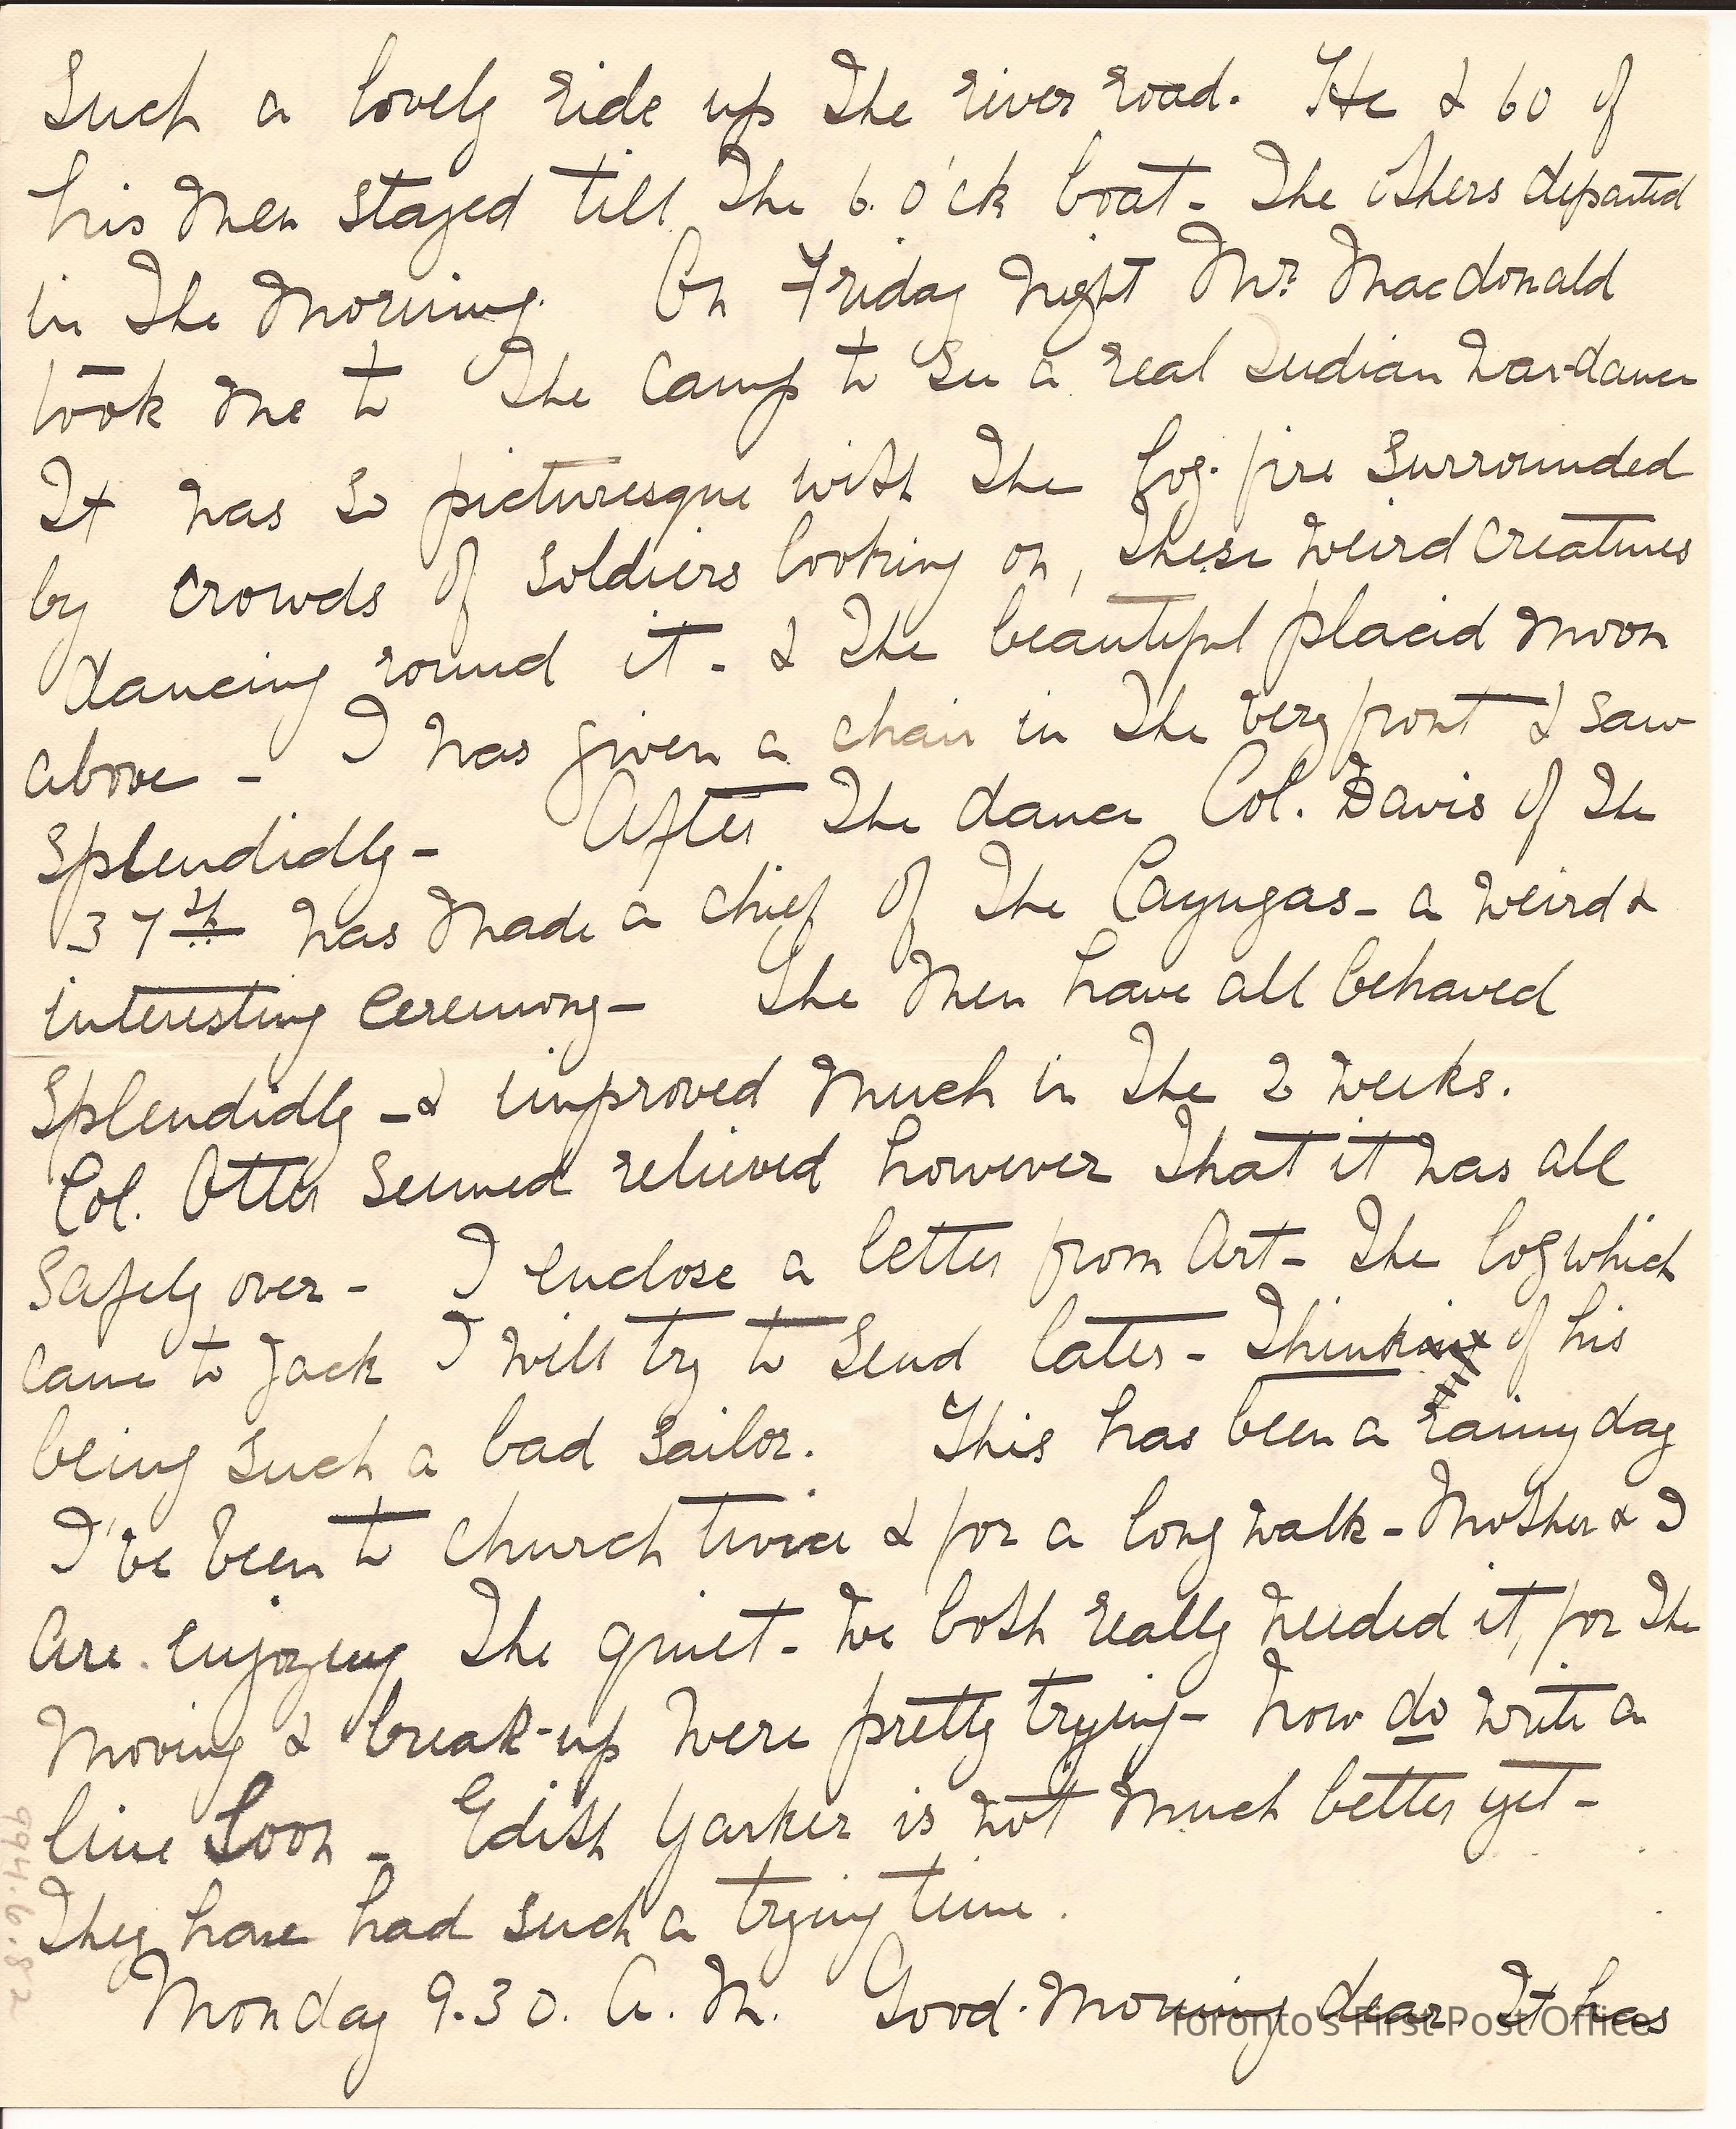 Such a lovely ride up the river road. He & 60 of
his men stayed till the 6. o'ck boat - The others departed
in the morning. On Friday night Mr. Macdonald
took me to the camp to see a real Indian war-dance
It was so picturesque with the log-fire surrounded
by crowds of soldiers looking on, these weird creatures
dancing round it - & the beautiful placid moon
above - I was given a chair in the very front & saw
splendidly - After the dance Col. Davis of the
37th was made a chief of the Cayugas - a weird &
interesting ceremony - The men have all behaved
splendidly - & improved much in the 2 weeks.
Col. Otter seemed relieved however that it was all
safely over - I enclose a letter from Art - The log which
came to Jack I will try to send later - Think of his
being such a bad sailor. This has been a rainy day
I've been to church twice & for a long walk - Mother & I
are enjoying the quiet - We both really needed it, for the
moving & break-up were pretty trying - Now do write a
line soon - Edith Yarker is not much better yet -
They have had such a trying time.
Monday 9.30. A.M. Good-morning dear It has
994.6.82
Toronto's First Post Office